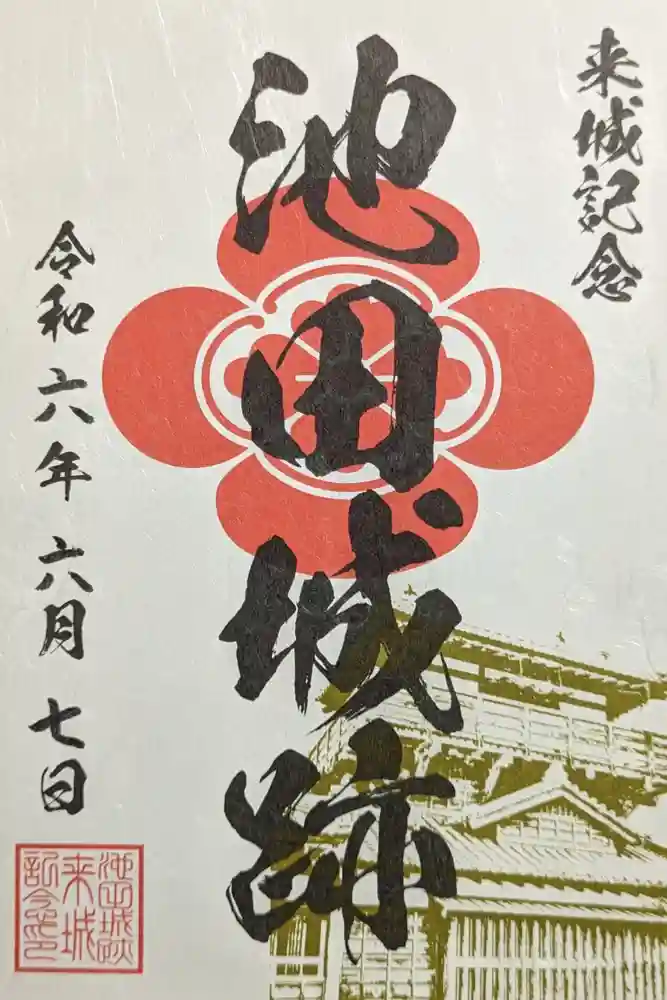 来城記念
池田城跡
令和六年六月七日
池田城跡
来城
記念印